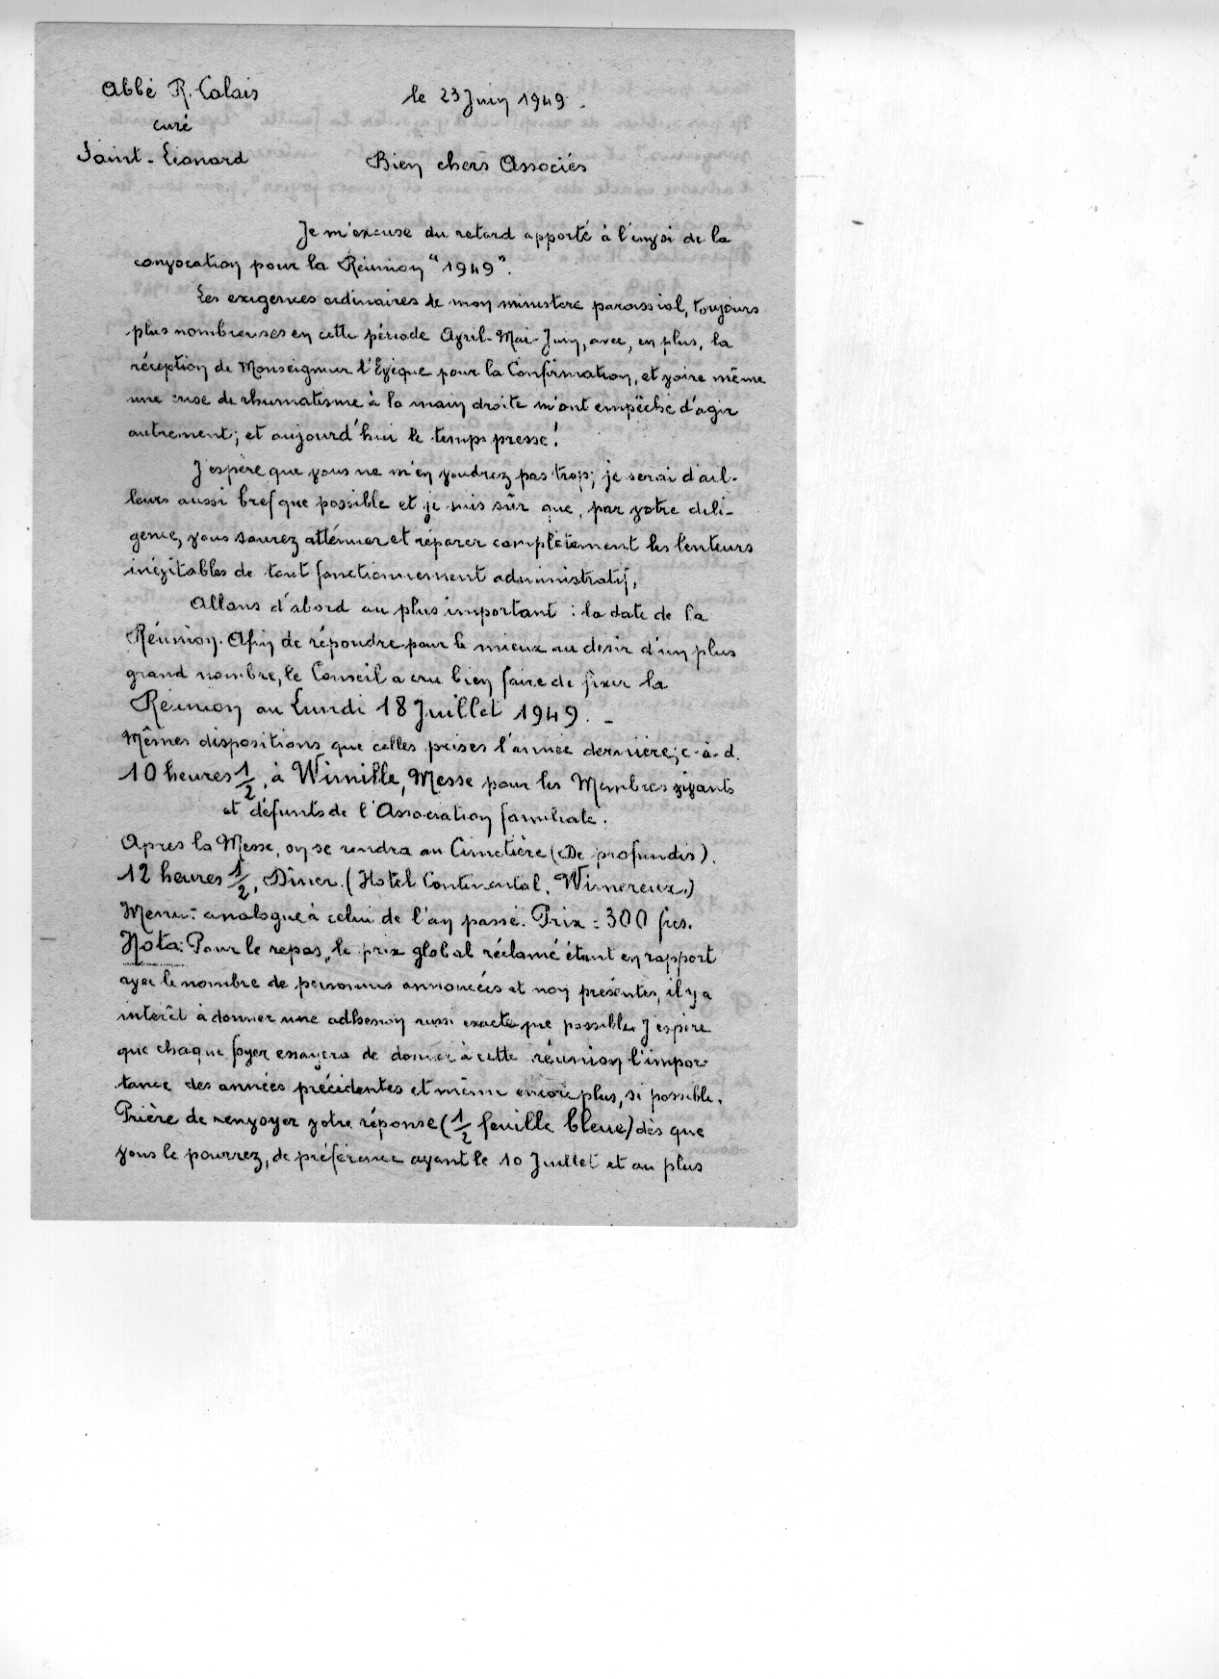 Abbé R. Calais
le 23 Juin 1949.
curé
Saint-Léonard
Bien chers Associés
Je m'excuse du retard apporté à l'envoi de la
convocation pour la Réunion "1949".
Les exigences ordinaires de mon ministère paroissial, toujours
plus nombreuses en cette période Avril-Mai-Juin, avec, en plus, la
réception de Monseigneur l'Evêque pour la Confirmation, et voire même
une crise de rhumatisme à la main droite m'ont empêché d'agir
autrement; et aujourd'hui le temps presse!
J'espère que vous ne m'en voudrez pas trop; je serai d'ail-
leurs aussi bref que possible et je suis sûr que, par votre dili-
gence, vous saurez atténuer et réparer complètement les lenteurs
inévitables de tout fonctionnement administratif.
Allons d'abord au plus important : la date de la
Réunion. Afin de répondre pour le mieux au désir d'un plus
grand nombre, le Conseil a cru bien faire de fixer la
Réunion au Lundi 18 Juillet 1949. -
Mêmes dispositions que celles prises l'année dernière; c.-à-d.
10 heures 1/2, à Wimille, Messe pour les Membres vivants
et défunts de l'Association familiale.
Après la Messe, on se rendra au Cimetière (De profundis).
12 heures 1/2, Dîner. (Hotel Continental, Wimereux.)
Menu: analogue à celui de l'an passé. Prix = 300 frcs.
Nota: Pour le repas, le prix global réclamé étant en rapport
avec le nombre de personnes annoncées et non présentes, il y a
intérêt à donner une adhésion aussi exacte que possible. J'espère
que chaque foyer essayera de donner à cette réunion l'impor-
tance des années précédentes et même encore plus, si possible.
Prière de renvoyer votre réponse (1/2 feuille bleue) dès que
vous le pourrez, de préférence avant le 10 Juillet et au plus